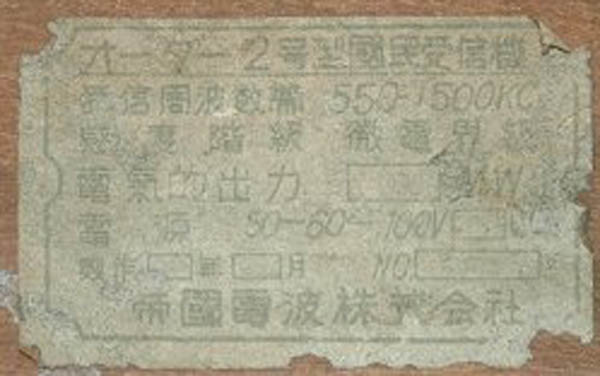 オーダー2号型國民受信機
受信周波数帯 550-1500KC
感度階級 微電界級
電氣的出力 MW
電源 50-60~ 100V
製作 年 月 NO.
帝國電波株式会社